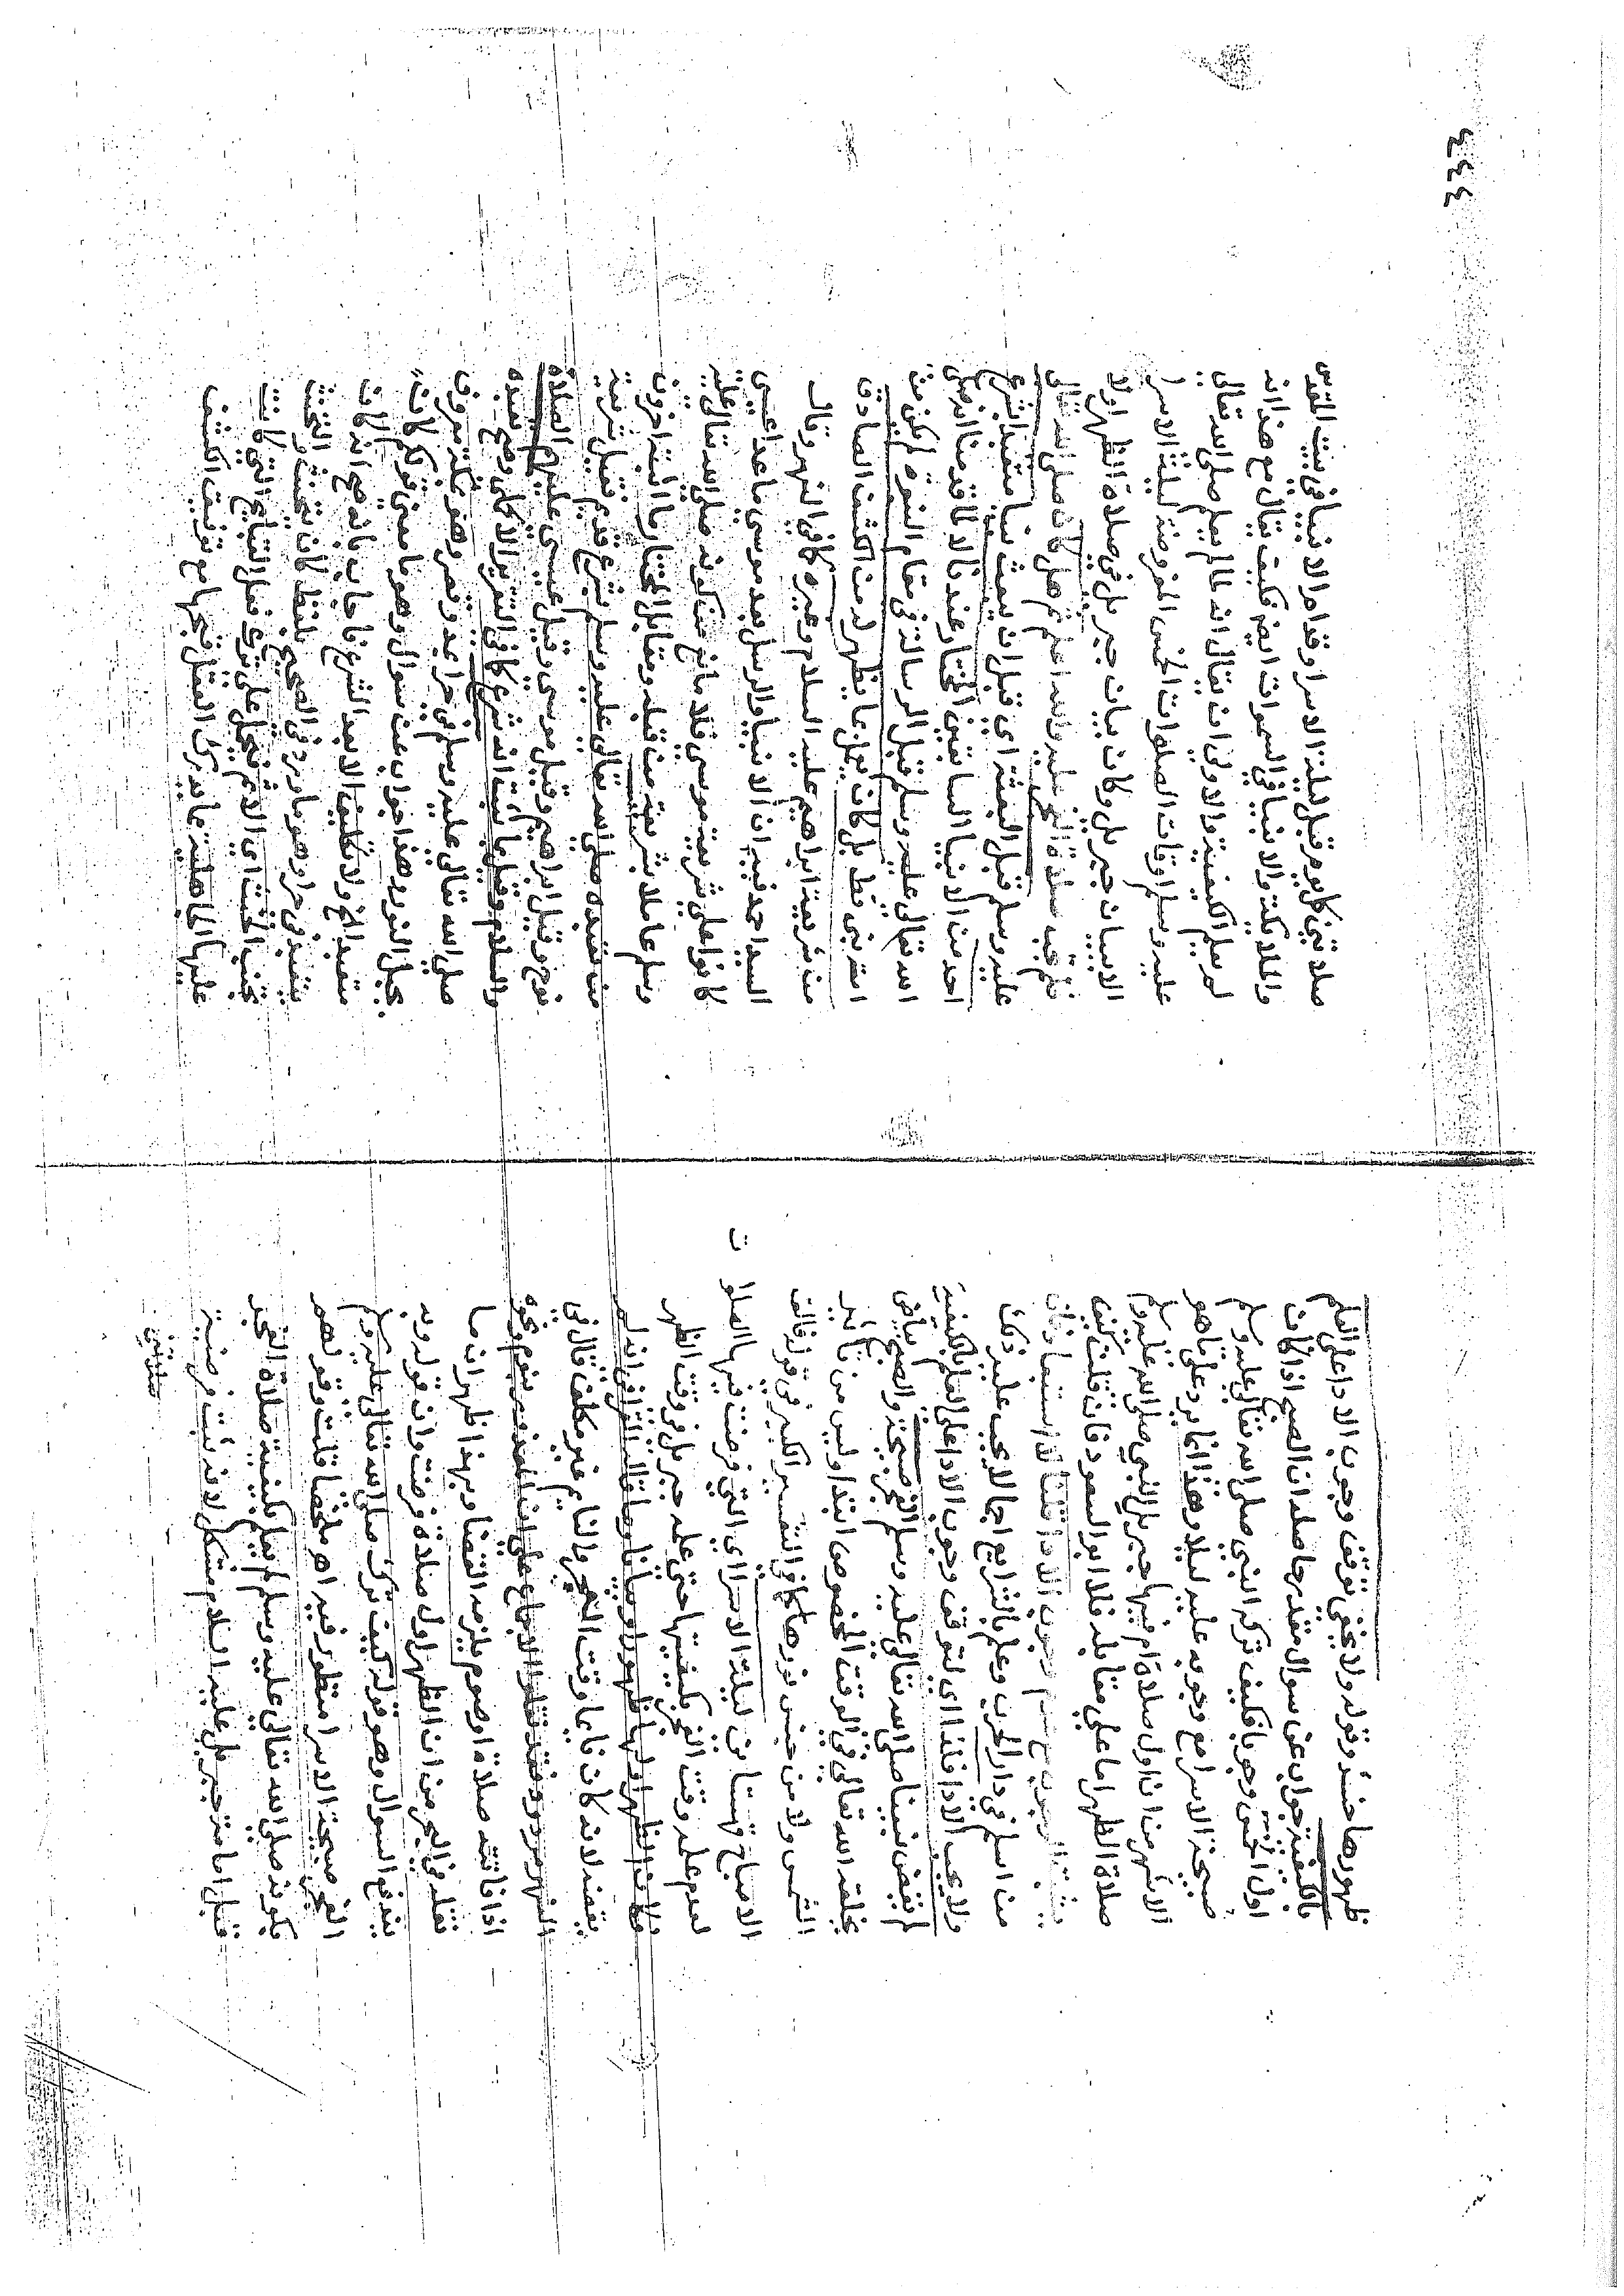 ظهورها حسا وقوله ولا يخفى توقف وجوب الاداعلى العلم
بالكيفية جواب عن سوال مقدر حاصله ان الصبح اذا كان
اول الخمس وجوبا فكيف تركه النبي صلى الله تعالى عليه وسلم
صبيحة الاسرا مع وجوبه عليه ليلا وهذا انما يرد على ما هو
الاشهر من ان اول صلاة ام فيها جبريل النبي صلى الله عليه وسلم
صلاة الظهر اما على مقابله فلا ابو السعود فان قلت كيف
وجوب الادا قلنا
من اسلم في دار الحرب وعلم بالشرايع اجمالا يجب عليه ذلك
ولا يجب الادا فلذا اي لتوقف وجوب الاداعلى العلم بالكيفية
لم يقض نبينا صلى الله تعالى عليه وسلم الفجر صبيحة والصبح بياض
يخلقه الله تعالى في الوقت المخصوص ابتدا وليس من تاثير
الشمس ولا من جنس نورها كما في التفسير الكبير في قوله فالق
الاصباح قهستاني ليلة الاسرا اي التي فرضت فيها الصلوات
لعدم علمه وقت الفجر بكيفيتها حتى علمه جبريل في وقت الظهر
الظهر اولها ظهورا وبيانا انه لم
يقضه لانه كان نايما وقت الفجر والنايم غير مكلف قال في
النهر مردود فقد نقلوا الاجماع على ان المعذور بنوم ونحوه
اذا فاتته صلاة او صوم يلزمه القضا وبهذا ظهر ان ما
نقله في البحر من ان الظهر اول صلاة فرضت وان قوله وبه
يندفع السوال وهو قوله كيف ترك صلى الله تعالى عليه وسلم
الفجر صبيحة الاسرا منظور فيه اه ملخصا قلت وقولهم
بكونه صلى الله تعالى عليه وسلم لم يعلم بكيفية صلاة الفجر
قبل امامة جبريل عليه السلام مشكل لانه ثبت فرضية
صلاتين
٤٤٤
صلاتين كل يوم قبل ليلة الاسرا وقد ام الانبيا في بيت المقدس
والملائكة والانبيا في السموات ايضا فكيف يقال مع هذا انه
لم يعلم الكيفية والاولى ان يقال انه لما لم يعلم صلى الله تعالى
عليه وسلم اوقات الصلوات الخمس المفروضة ليلة الاسرا
الا ببيان جبريل وكان بيان جبريل في صلاة الظهر اولا
والله اعلم ثم هل كان صلى الله تعالى
عليه وسلم قبل البعثة اي قبل ان يبعث نبيا متعبدا بشرع
احد من الانبيا السابقين المختار عندنا لا لانه صلى
الله تعالى عليه وسلم قبل الرسالة في مقام النبوة لم يكن من
امة نبي قط بل كان يعمل بما يظهر له من الكشف الصادق
من شريعة ابراهيم عليه السلام وغيره كما في النهر وقال
السيد احمد فيه ان الانبيا والرسل بعد موسى ما عدا عيسى
كانوا على شريعة موسى فلا مانع من كونه صلى الله تعالى عليه
وسلم عاملا بشريعة من قبله ومقابل المختار ما اثبته اخرون
من تعبده صلى الله تعالى عليه وسلم بشرع قديم فقيل شريعة
نوح وقيل ابراهيم وقيل موسى وقيل عيسى عليهم الصلاة
والسلام وقيل ما ثبت انه شرع كما في التقرير الاكملي وصح تعبده
صلى الله تعالى عليه وسلم في حرا
بجبل النور وهذا جواب عن سوال وهو ما معنى قولكم كان
متعبدا الخ ولا تكليف الا بعد الشرع فاجاب بانه صح انه كان
يتعبد في حرا وهو ما ورد في الصحيح بلفظ كان يتحنث والتحنث
تجنب الحنث اي الاثم فيحمل على ترك فعل القبايح التي كانت
عليها الجاهلية مما يدرك العقل قبحها مع توفيق الكشف